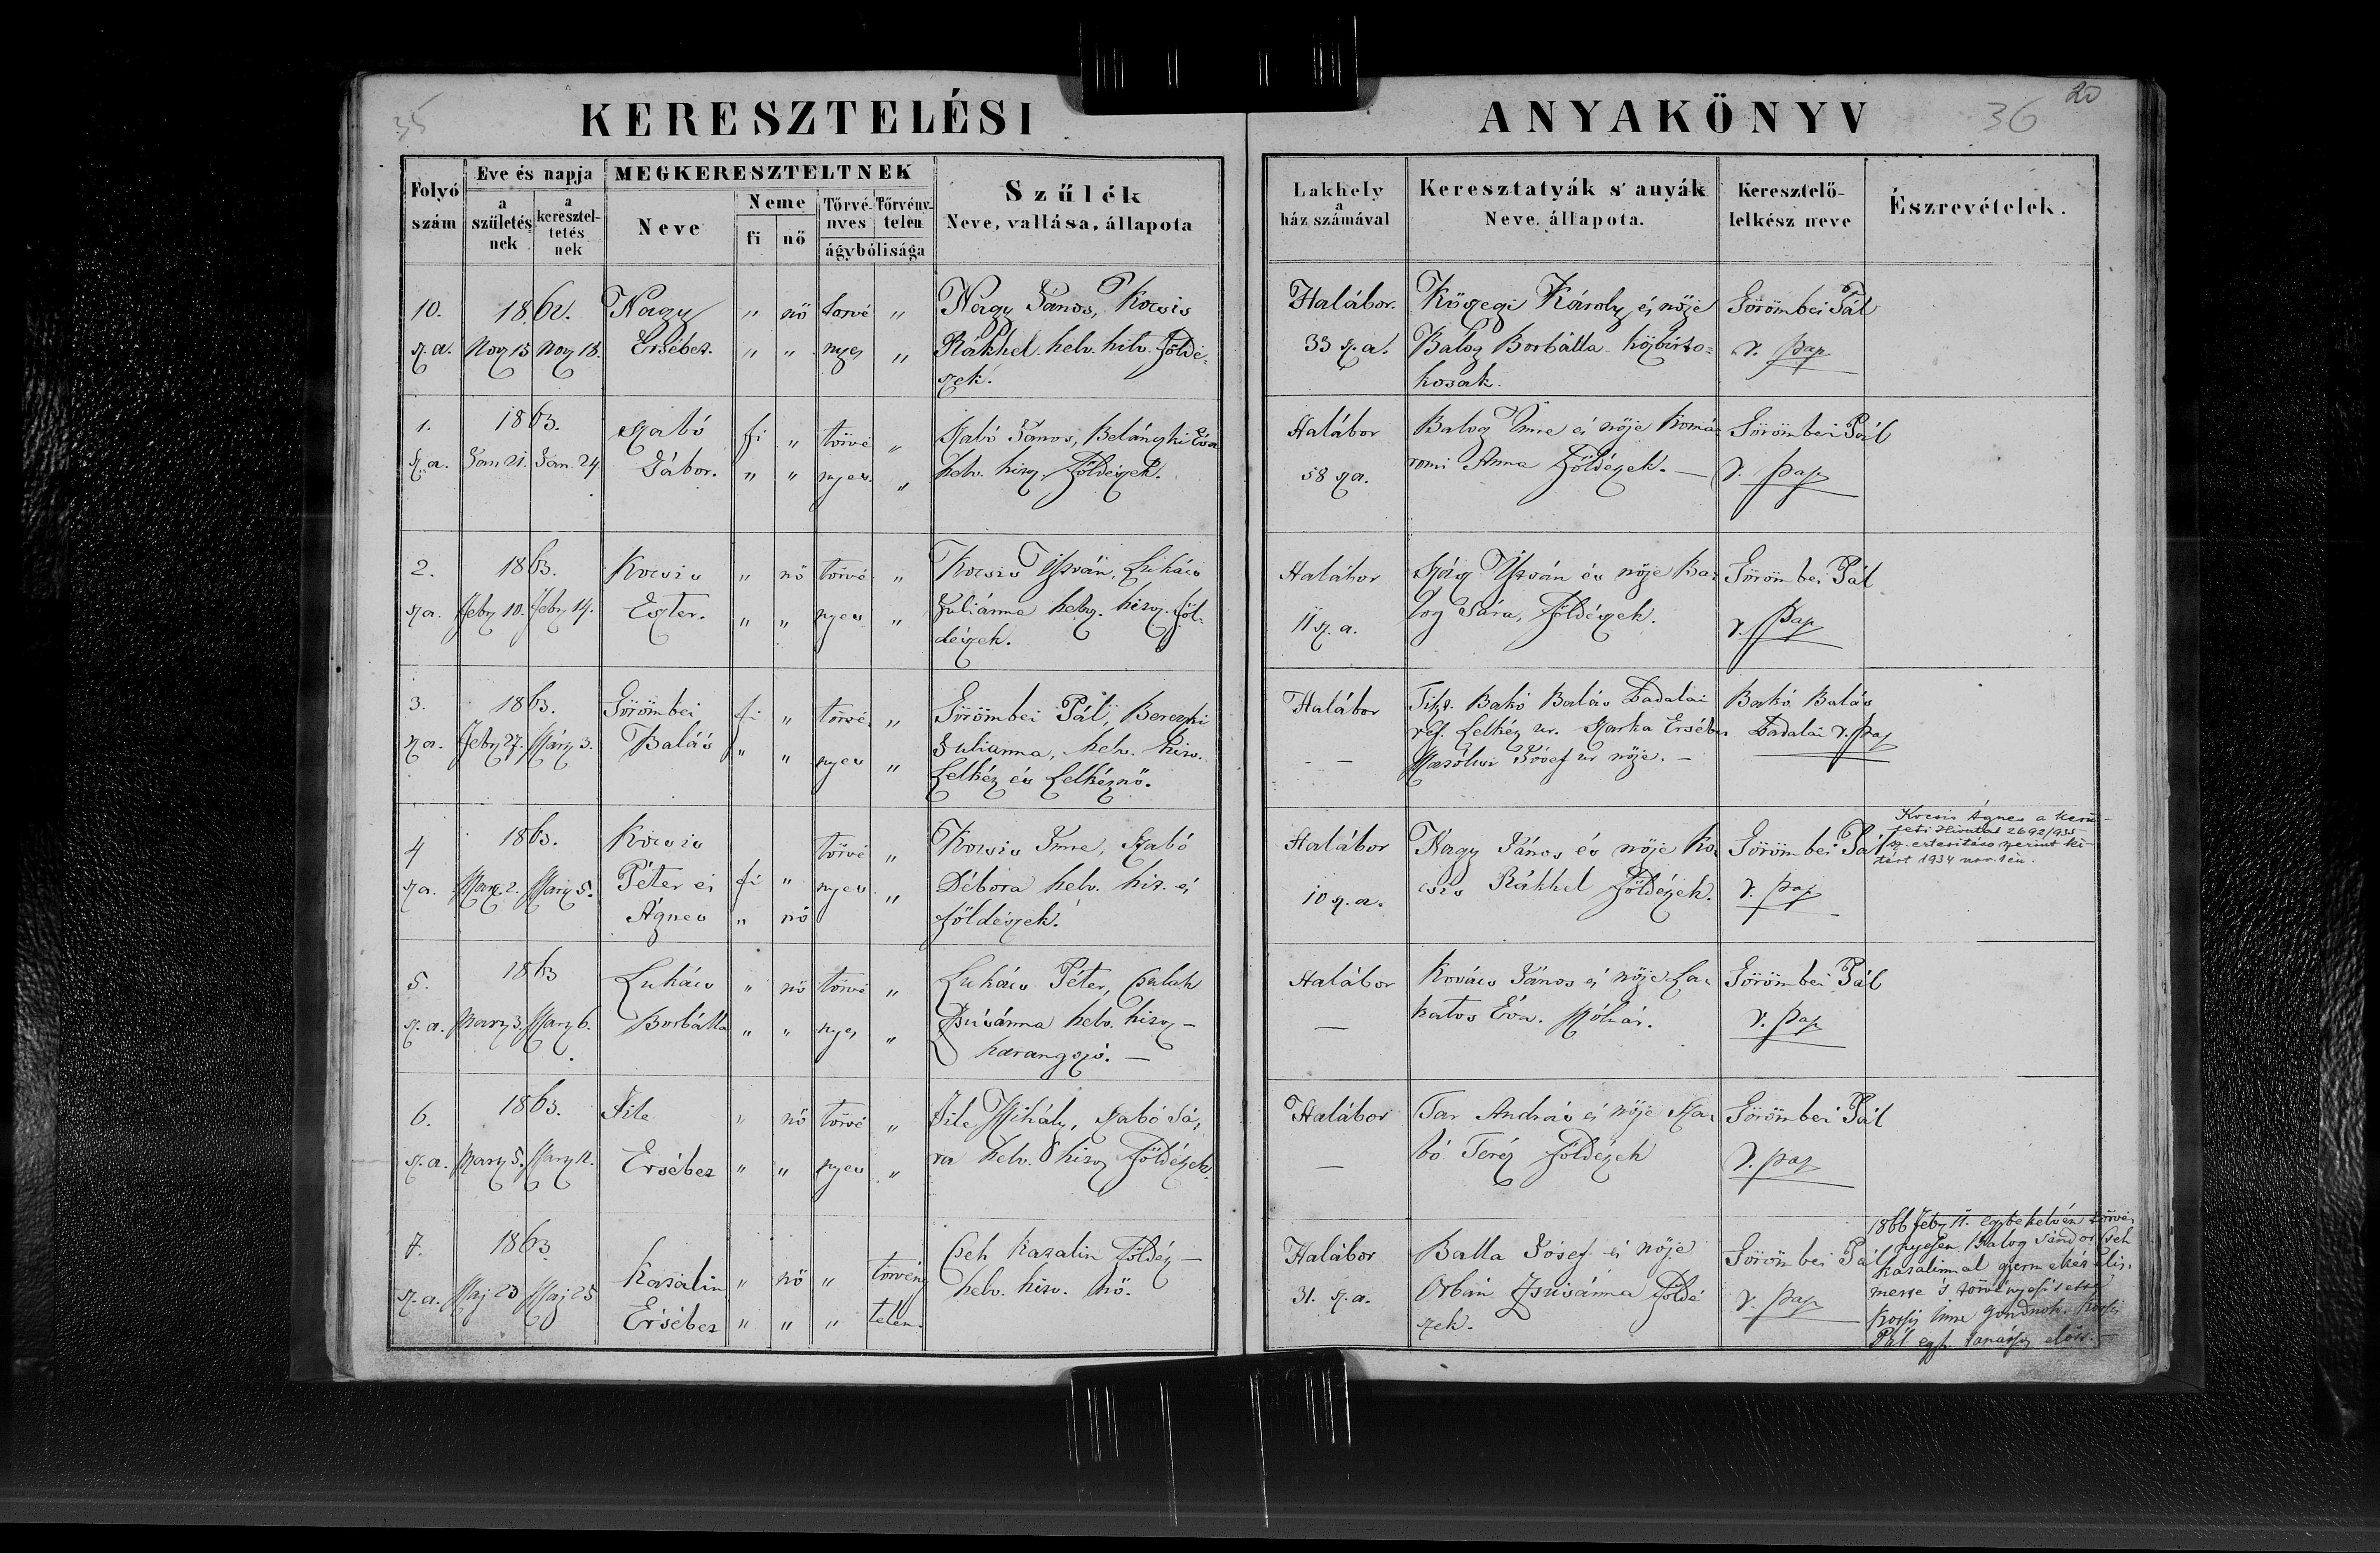 35
KERESZTELÉSI
ANYAKÖNYV
36
20
Folyó szám
Eve és napja
a születésnek
a keresztel-tetésnek
MEGKERESZTELTNEK
Neve
Neme
fi
nő
Törvé-nyes
Törvény-telen
ágybólisága
Szűlék
Neve, vallása, állapota
Lakhely
a
ház számával
Keresztatyák s' anyák
Neve, állapota.
Keresztelő-
lelkész neve
Észrevételek.
10. 1862. Nagy " nő törvé " Nagy János, Kocsis
sz.a. Nov 15 Nov 18. Ersébet. " " nyes " Rákhel. helv. hitv. földé-
szek.
Halábor. Kőszegi Károly és nője Sörömbei Pál
33 sz.a. Balog Borbálla közbirto= r. pap
kosak.
1. 1863. Szabó fi " törvé " Szabó János, Éva
sz.a. Jan 21. Jan. 24. Gábor. " " nyes " helv. hitv. földészek.
Halábor Balog Imre és nője Komá= Sörömbei Pál
58 sz.a. romi Anna földészek. — r. pap
2. 1863. Kocsis " nő törvé " Kocsis István, Lukács
sz.a. Feby 10. Feby 14. Eszter. " " nyes " Juliánna helv. hitv. föl-
dészek.
Halábor István és nője Ba= Sörömbei Pál
11 sz.a. log Sára, földészek. r. pap
3. 1863. Sörömbei fi " törvé " Sörömbei Pál, Bereczki
sz.a. Feby 27. Márz 3. Balás " " nyes " Julianna, helv. hitv.
Lelkész és Lelkésznő.
Halábor Tit. Bakó Balás Badalai Bakó Balás
— — ref. Lelkész ur. Ersébet Badalai r. pap
József ur nője. —
4 1863. Kocsis törvé " Kocsis Imre, Szabó
sz.a. Marz. 2. Marz 5. Péter és fi " nyes " Débora helv. hit. és
Ágnes " nő földészek.
Halábor Nagy János és nője Ko= Sörömbei Pál
10 sz.a. csis Rákhel földészek. r. pap
Kocsis Ágnes a kerü-
leti Hivatal 2692/935
sz. értesitése szerint ki-
tért 1934 nov. 1 én.
5. 1863 Lukács " nő törvé " Lukács Péter,
sz.a. Marz 3. Marz 6. Borbálla " " nyes " Zsusánna helv. hitv —
harangozó. —
Halábor Kovács János és nője La= Sörömbei Pál
— katos Éva. Molnár. r. pap
6. 1863. File " nő törvé " File Mihály, Szabó Sá=
sz.a. Marz 5. Marz 12. Ersébet " " nyes " ra helv. hitv földészek.
Halábor Tar András és nője Sza= Sörömbei Pál
— bó Teréz földészek r. pap
7. 1863 Katalin " nő " törvény Cseh Katalin földész —
sz.a. Maj 23 Maj 25 Ersébet " " " telen. helv. hitv. nő.
Halábor Balla József és nője Sörömbei Pál
31. sz.a. Orbán Zsusánna földé r. pap
szek.
1866 Feby 11. egybekelvén törvé-
nyesen Balog Sándor Cseh
Katalinnal gyermekét elis-
merte s törvényesítette
Imre gondnok.
Pál egyh. tanácsos előtt. —